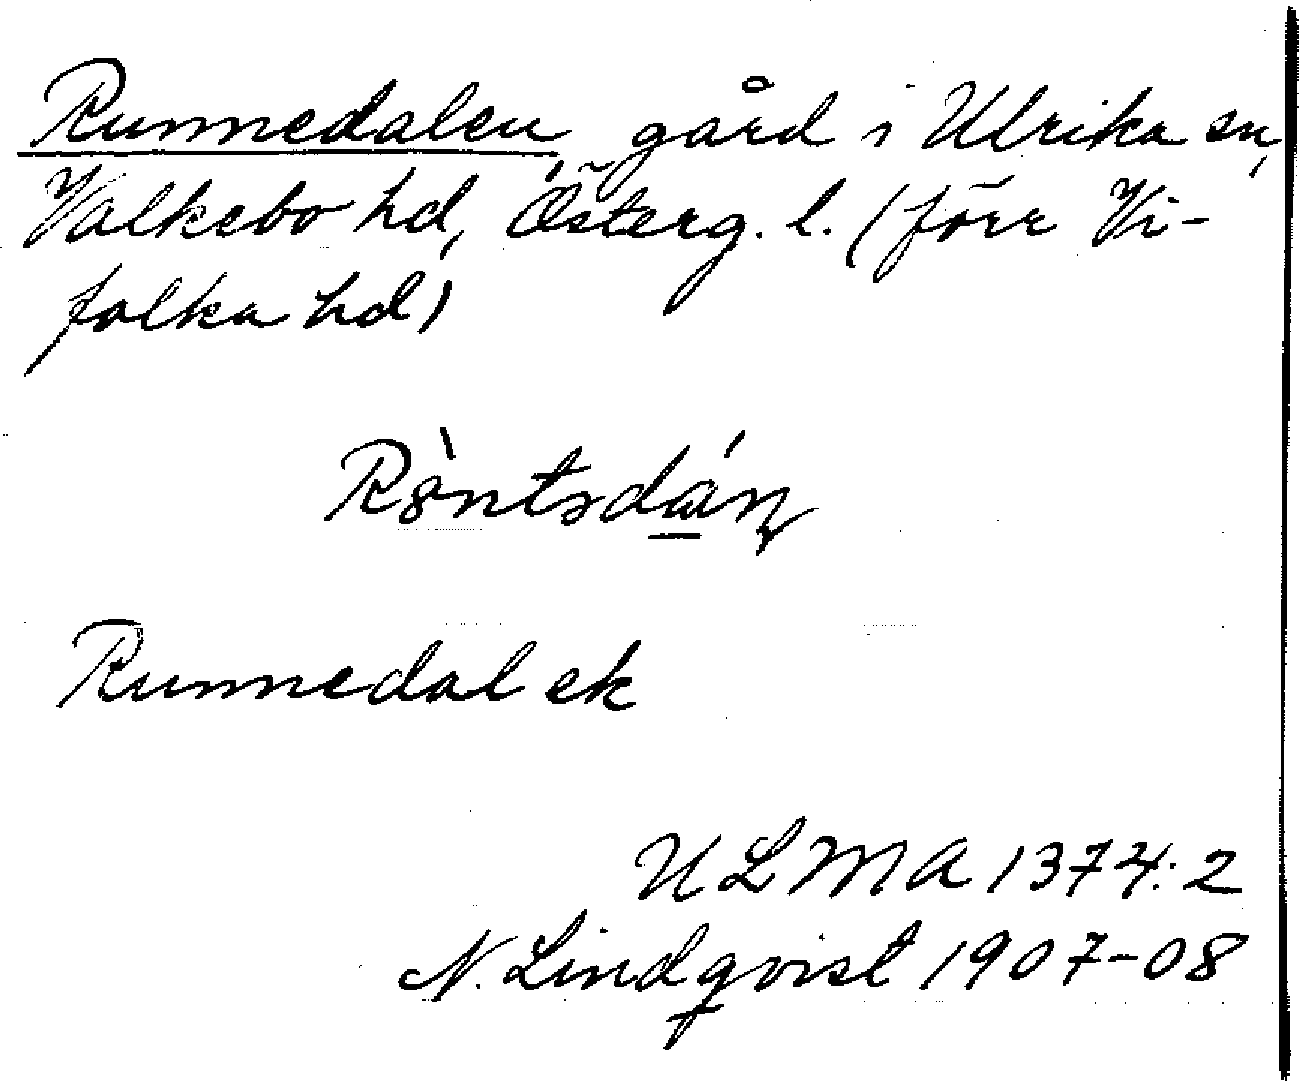 Runnedalen, gård i Ulrika sn,
Valkebo hd, Österg. l. (förr Vi-
folka hd)
Runnedal ek
ULMA 1374:2
N. Lindqvist 1907-08